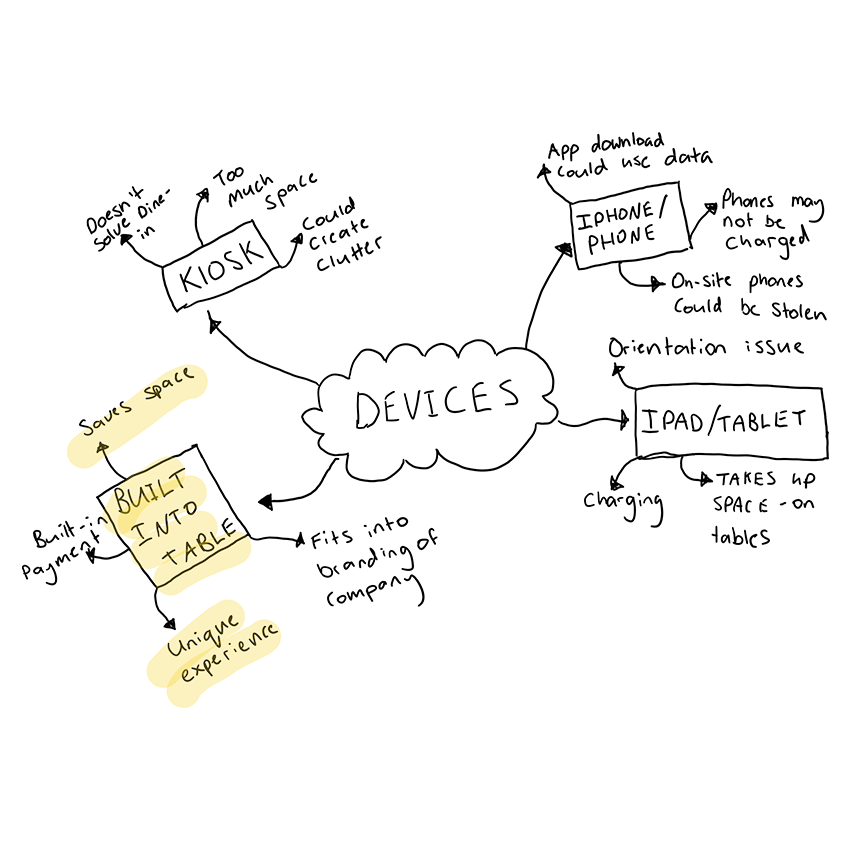 DEVICES
KIOSK
Doesn't
Solve Dine-
in
Too
much
space
Could
Create
Clutter
IPHONE/
PHONE
App download
Could use data
Phones may
not be
charged
On-site phones
Could be Stolen
IPAD/TABLET
Orientation issue
Charging
TAKES UP
SPACE - on
tables
BUILT
INTO
TABLE
Saves space
Built-in
Payment
Unique
experience
Fits into
branding of
company